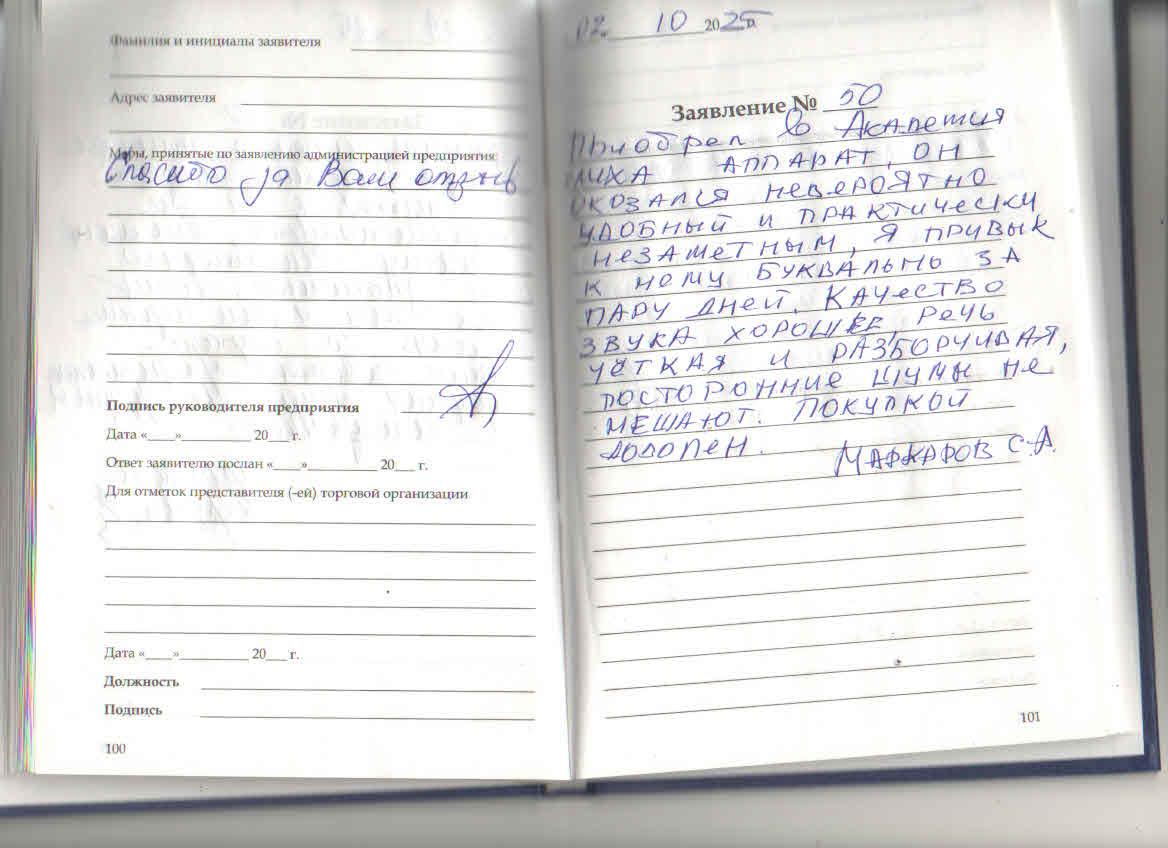 Фамилия и инициалы заявителя
Адрес заявителя
Меры, принятые по заявлению администрацией предприятия:
Спасибо за Ваш отзыв
Подпись руководителя предприятия
Дата «____»__________ 20___ г.
Ответ заявителю послан «____»__________ 20___ г.
Для отметок представителя (-ей) торговой организации
Дата «____»__________ 20___ г.
Должность
Подпись
100
02 10 2025 г.
Заявление № 50
Приобрел в Академия
слуха АППАРАТ, ОН
ОКОЗАЛСЯ НЕВЕРОЯТНО
УДОБНЫЙ И ПРАКТИЧЕСКИ
НЕЗАМЕТНЫМ, Я ПРИВЫК
К НЕМУ БУКВАЛЬНО ЗА
ПАРУ ДНЕЙ. КАЧЕСТВО
ЗВУКА ХОРОШЕЕ, РЕЧЬ
ЧЁТКАЯ И РАЗБОРЧИВАЯ,
ПОСТОРОННИЕ ШУМЫ НЕ
МЕШАЮТ. ПОКУПКОЙ
ДОВОЛЕН. МАРКАРОВ С.А.
101